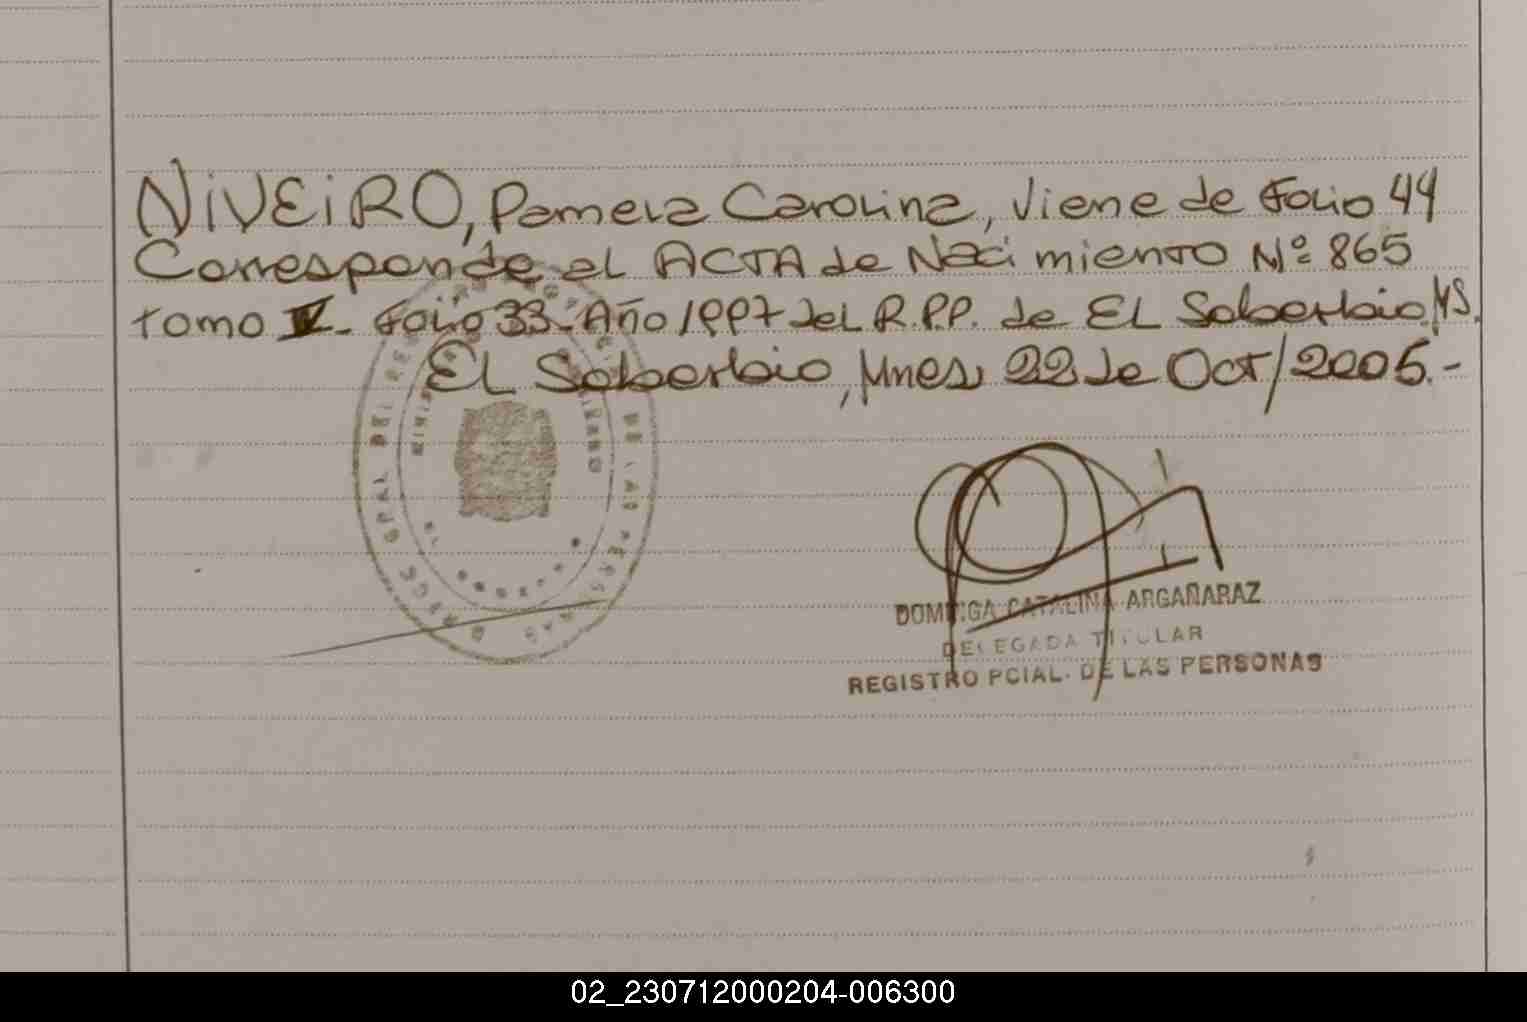 NIVEIRO, Pamela Carolina, Viene de Folio 44
Corresponde al ACTA de Nacimiento Nº 865
Tomo V. Folio 33 - Año 1997 del R.P.P. de EL Soberbio, MS.
EL Soberbio, Mnes, 22 de Oct/2005.-
DE LAS PERSONAS
DOMINGA CATALINA ARGAÑARAZ
DELEGADA TITULAR
REGISTRO PCIAL. DE LAS PERSONAS
02_230712000204-006300